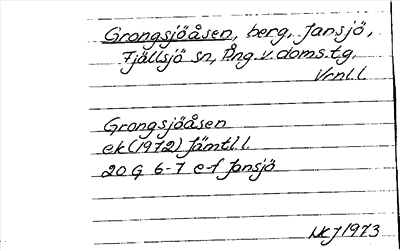 Grongsjöåsen, berg, Jansjö,
Fjällsjö sn, Ång. v. doms. tg,
Vrnl. l.
Grongsjöåsen
ek (1972) Jämtl. l
20 G 6-7 e-f Jansjö
1973